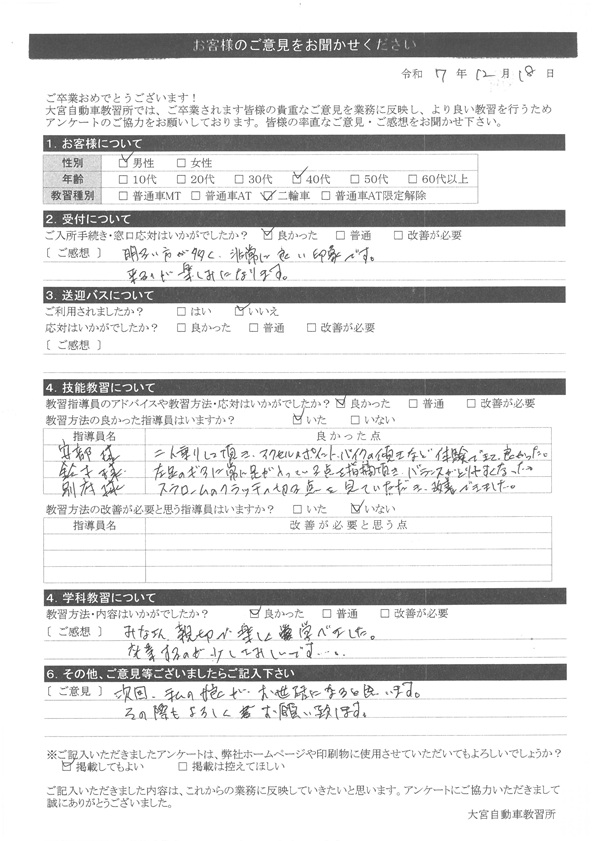 お客様のご意見をお聞かせください
令和 7 年 12 月 18 日
ご卒業おめでとうございます！
大宮自動車教習所では、ご卒業されます皆様の貴重なご意見を業務に反映し、より良い教習を行うため
アンケートのご協力をお願いしております。皆様の率直なご意見・ご感想をお聞かせ下さい。
1. お客様について
性別 ☑男性 □女性
年齢 □10代 □20代 □30代 ☑40代 □50代 □60代以上
教習種別 □普通車MT □普通車AT ☑二輪車 □普通車AT限定解除
2. 受付について
ご入所手続き・窓口応対はいかがでしたか？ ☑良かった □普通 □改善が必要
〔ご感想〕 明るい方が多く、非常に良い印象です。
来るのが楽しみになります。
3. 送迎バスについて
ご利用されましたか？ □はい ☑いいえ
応対はいかがでしたか？ □良かった □普通 □改善が必要
〔ご感想〕
4. 技能教習について
教習指導員のアドバイスや教習方法・応対はいかがでしたか？ ☑良かった □普通 □改善が必要
教習方法の良かった指導員はいますか？ ☑いた □いない
指導員名 良かった点
安部様 二人乗りして頂き、アクセルポイント、バイクの傾きなど体験できて良かった。
鈴木様 左足のギアに常に足が入っている点を指摘頂き、バランスがとりやすくなった。
別府様 スラロームのクラッチの切る点を見ていただき、改善できました。
教習方法の改善が必要と思う指導員はいますか？ □いた ☑いない
指導員名 改善が必要と思う点
4. 学科教習について
教習方法・内容はいかがでしたか？ ☑良かった □普通 □改善が必要
〔ご感想〕 みなさん、親切で楽しく学べました。
卒業するのが少しさみしいです…。
6. その他、ご意見等ございましたらご記入下さい
〔ご意見〕 次回、私の娘が、お世話になると思います。
その際もよろしくお願い致します。
※ご記入いただきましたアンケートは、弊社ホームページや印刷物に使用させていただいてもよろしいでしょうか？
☑掲載してもよい □掲載は控えてほしい
ご記入いただきました内容は、これからの業務に反映していきたいと思います。アンケートにご協力いただきまして
誠にありがとうございました。
大宮自動車教習所